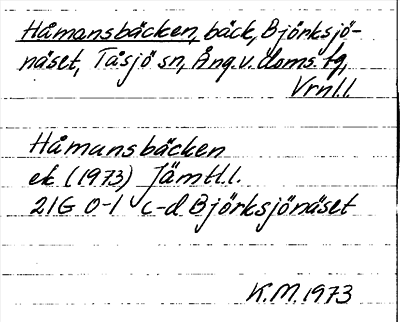 Håmansbäcken, bäck, Björksjö-
näset, Tåsjö sn, Ång. v. doms. tg,
Vrnl.l.
Håmansbäcken
ek (1973) Jämtl.l.
21G 0-1 c-d Björksjönäset
K.M. 1973